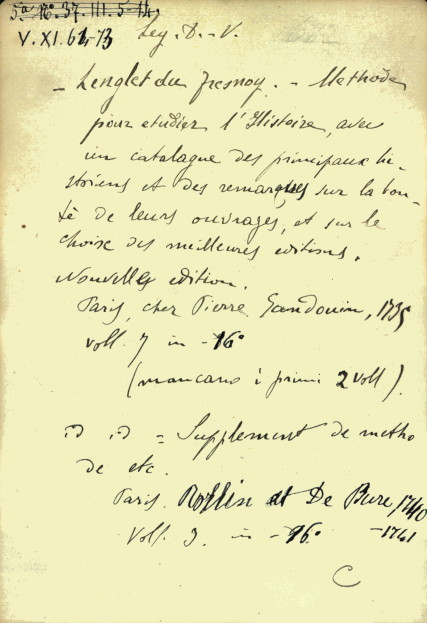 5ª Nº 37. III. 5-14.
V. XI. 61-73 Leg. D. V.
- Lenglet du fresnoy. - Methode
pour etudier l'Histoire, avec
un catalague des principaux hi-
storiens et des remarques sur la bon-
tè de leurs ouvrages, et sur le
choise des meilleures editions.
Nouvelles edition.
Paris, chez Pierre Gandouin, 1735
voll. 7 in -16º
(mancano i primi 2 voll).
= Supplement de metho
de etc.
Paris. Rollin et De Bure, 1740
Voll. 3. in -16º -1741
C